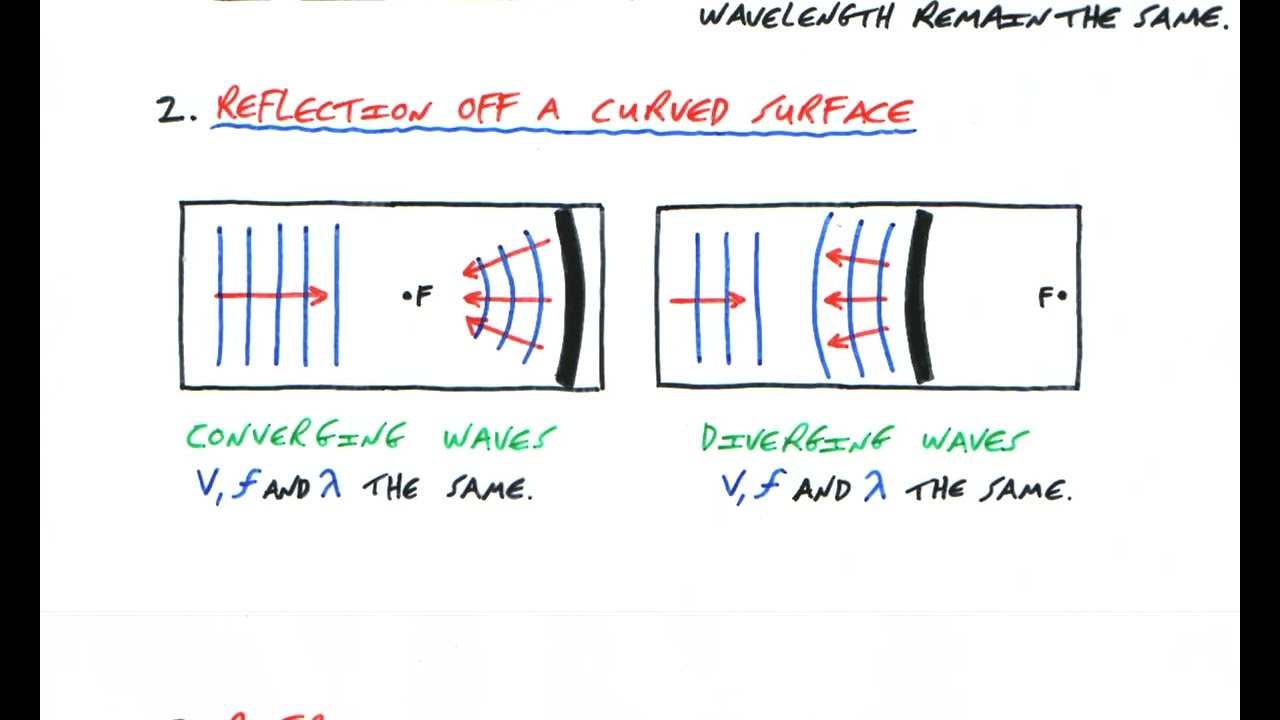 WAVELENGTH REMAIN THE SAME.
2. REFLECTION OFF A CURVED SURFACE
F
F
CONVERGING WAVES
DIVERGING WAVES
V, f AND λ THE SAME.
V, f AND λ THE SAME.